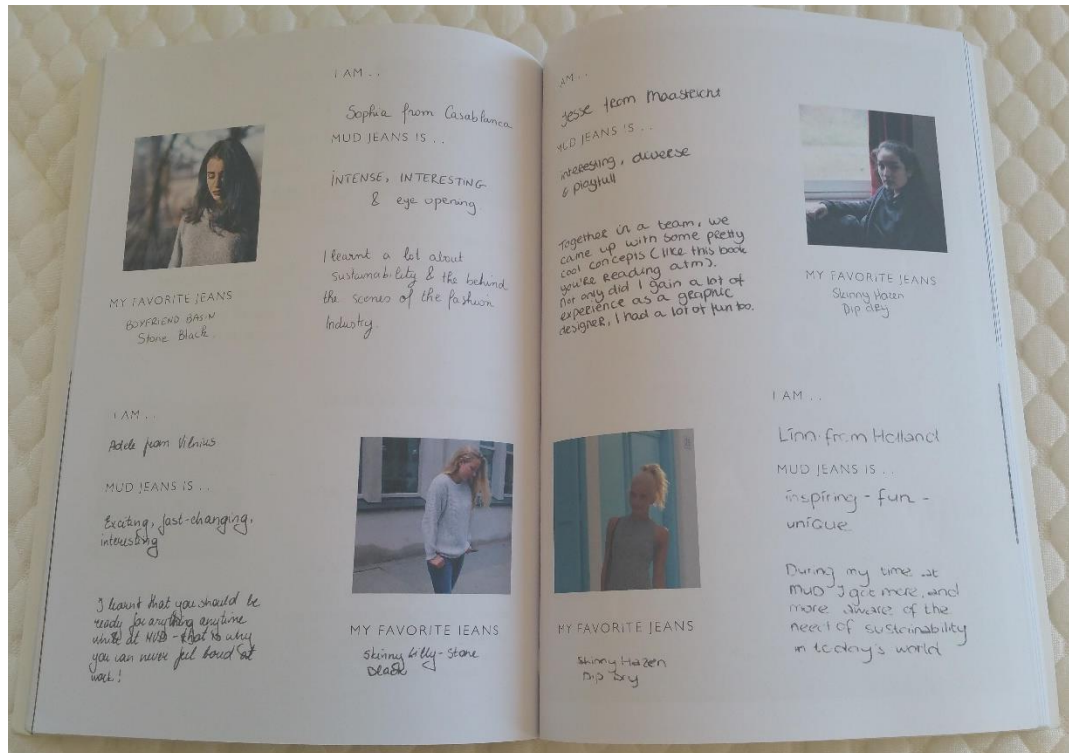 I AM . .
Sophia from Casablanca
MUD JEANS IS . .
INTENSE, INTERESTING
& eye opening
I learnt a lot about
sustainability & the behind
the scenes of the fashion
Industry.
MY FAVORITE JEANS
BOYFRIEND BASIN
Stone Black.
I AM . .
Adele from Vilnius
MUD JEANS IS . .
Exciting, fast-changing,
interesting
I learnt that you should be
ready for anything anytime
while at MUD - that is why
you can never feel bored at
work!
MY FAVORITE JEANS
Skinny Lilly - stone
black
AM . .
Jesse from Maastricht
MUD JEANS IS . .
interesting, diverse
& playfull
Together in a team, we
came up with some pretty
cool concepts (like this book
you're reading atm).
Not only did I gain a lot of
experience as a graphic
designer, I had a lot of fun too.
MY FAVORITE JEANS
Skinny Hazen
Dip dry
I AM . .
Linn from Holland
MUD JEANS IS . .
inspiring - fun -
unique
During my time at
MUD I got more, and
more aware of the
need of sustainability
in today's world
MY FAVORITE JEANS
Skinny Hazen
Dip Dry